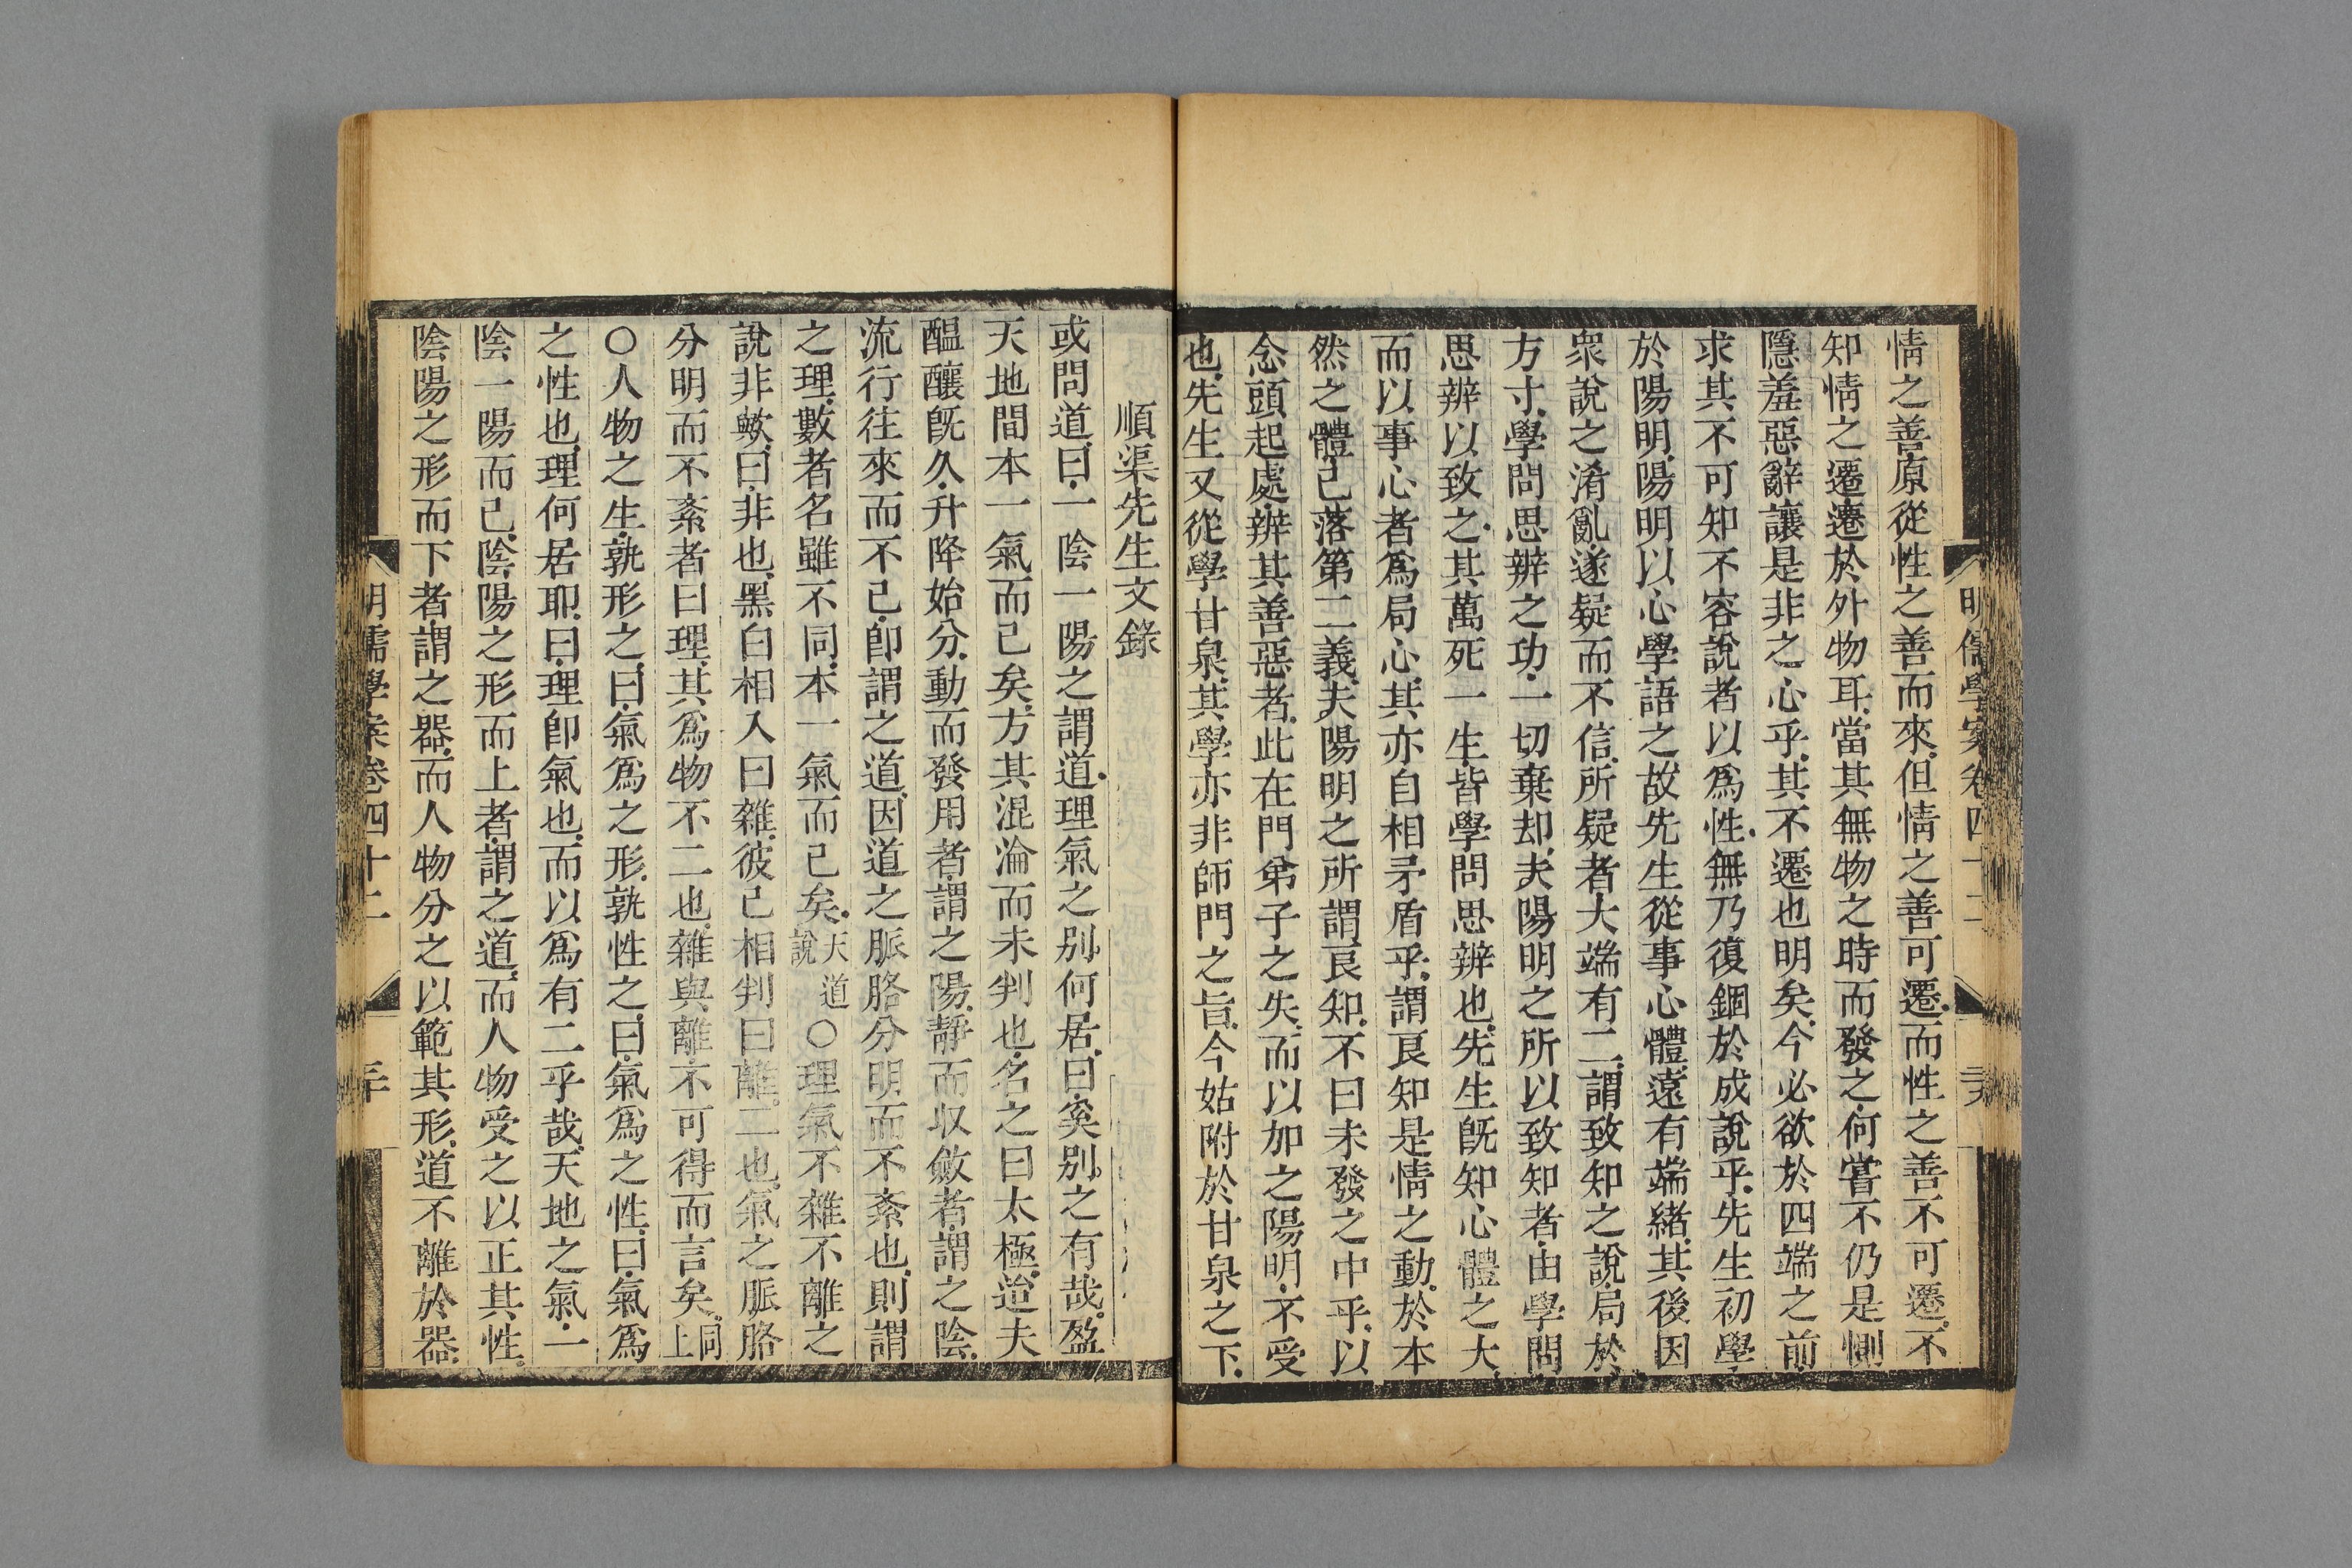 明儒學案卷四十二
情之善原從性之善而來但情之善可遷而性之善不可遷不
知情之遷遷於外物耳當其無物之時而發之何嘗不仍是惻
隱羞惡辭讓是非之心乎其不遷也明矣今必欲於四端之前
求其不可知不容說者以爲性無乃復錮於成說乎先生初學
於陽明陽明以心學語之故先生從事心體遠有端緒其後因
衆說之淆亂遂疑而不信所疑者大端有二謂致知之說局於
方寸學問思辨之功一切棄却夫陽明之所以致知者由學問
思辨以致之其萬死一生皆學問思辨也先生旣知心體之大
而以事心者爲局心其亦自相矛盾乎謂良知是情之動於本
然之體已落第二義夫陽明之所謂良知不曰未發之中乎以
念頭起處辨其善惡者此在門弟子之失而以加之陽明不受
也先生又從學甘泉其學亦非師門之旨今姑附於甘泉之下
順渠先生文錄
或問道曰一陰一陽之謂道理氣之别何居曰奚别之有哉盈
天地間本一氣而已矣方其混淪而未判也名之曰太極迨夫
醞釀旣久升降始分動而發用者謂之陽靜而收斂者謂之陰
流行往來而不已卽謂之道因道之脈胳分明而不紊也則謂
之理數者名雖不同本一氣而已矣天道說〇理氣不雜不離之
說非歟曰非也黑白相入曰雜彼己相判曰離二也氣之脈胳
分明而不紊者曰理其爲物不二也雜與離不可得而言矣同上
〇人物之生孰形之曰氣爲之形孰性之曰氣爲之性曰氣爲
之性也理何居耶曰理卽氣也而以爲有二乎哉天地之氣一
陰一陽而已陰陽之形而上者謂之道而人物受之以正其性
陰陽之形而下者謂之器而人物分之以範其形道不離於器
明儒學案卷四十二